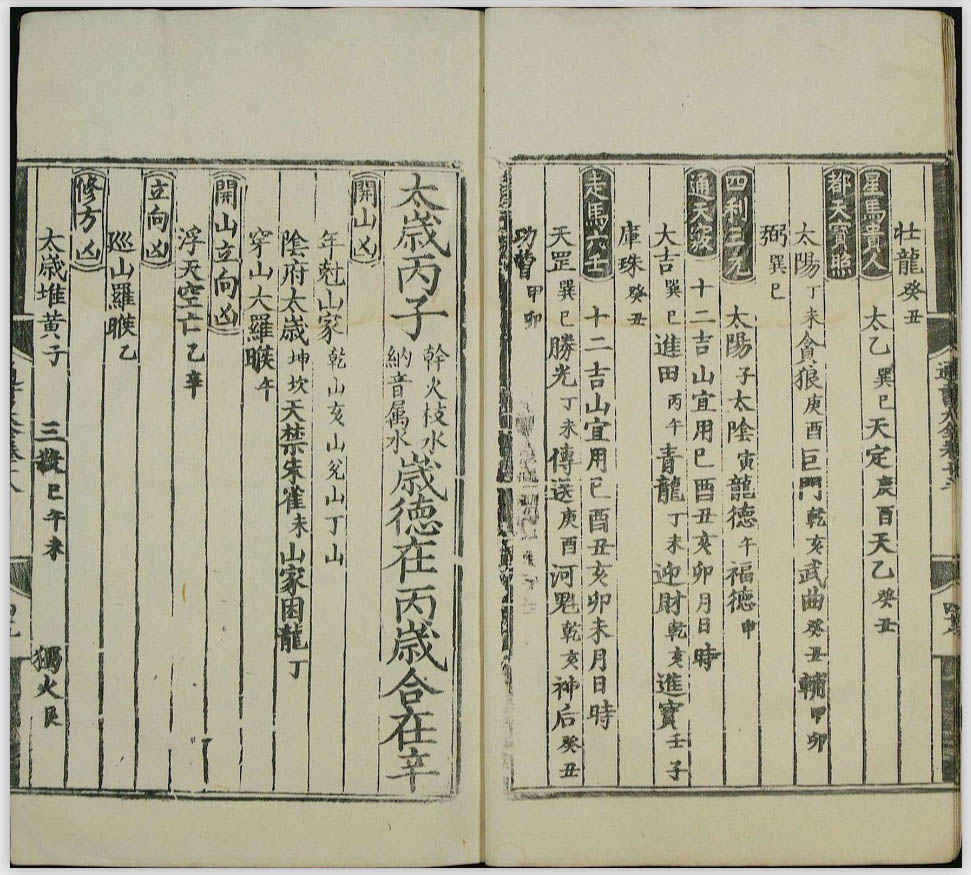 壮龍癸丑
星馬貴人 太乙巽巳天定庚酉天乙癸丑
都天寶照
太陽丁未貪狼庚酉巨門乾亥武曲癸丑輔甲卯
弼巽巳
四利三元 太陽子太陰寅龍德午福德申
通天竅 十二吉山宜用巳酉丑亥卯月日時
大吉巽巳進田丙午青龍丁未迎財乾亥進寶壬子
庫珠癸丑
走馬六壬 十二吉山宜用巳酉丑亥卯未月日時
天罡巽巳勝光丁未傳送庚酉河魁乾亥神后癸丑
功曹甲卯
太歲丙子幹火枝水納音属水歲德在丙歲合在辛
開山凶
年尅山家乾山亥山兊山丁山
陰府太歲坤坎天禁朱雀未山家困龍丁
穿山大羅睺午
開山立向凶
浮天空亡乙辛
立向凶
廵山羅睺乙
修方凶
太歲堆黄子 三殺巳午未 獨火艮